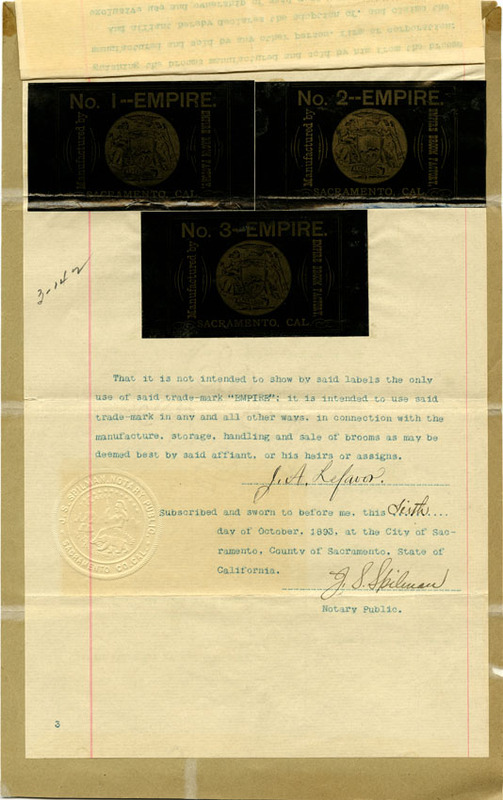 No. 1--EMPIRE.
Manufactured by
EMPIRE BROOM FACTORY.
SACRAMENTO, CAL.
No. 2--EMPIRE.
Manufactured by
EMPIRE BROOM FACTORY.
SACRAMENTO, CAL.
No. 3--EMPIRE.
Manufactured by
EMPIRE BROOM FACTORY.
SACRAMENTO, CAL.
3-142
That it is not intended to show by said labels the only
use of said trade-mark "EMPIRE"; it is intended to use said
trade-mark in any and all other ways, in connection with the
manufacture, storage, handling and sale of brooms as may be
deemed best by said affiant, or his heirs or assigns.
J. A. Lefavor.
Subscribed and sworn to before me, this Sixth....
day of October, 1893, at the City of Sac-
ramento, County of Sacramento, State of
California.
J. S. Spilman
Notary Public.
J. S. SPILMAN, NOTARY PUBLIC.
SACRAMENTO CO. CAL.
3